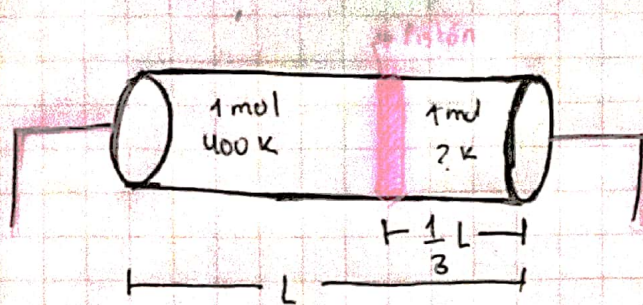 Pistón
1 mol
400 K
1 mol
? K
1/3 L
L